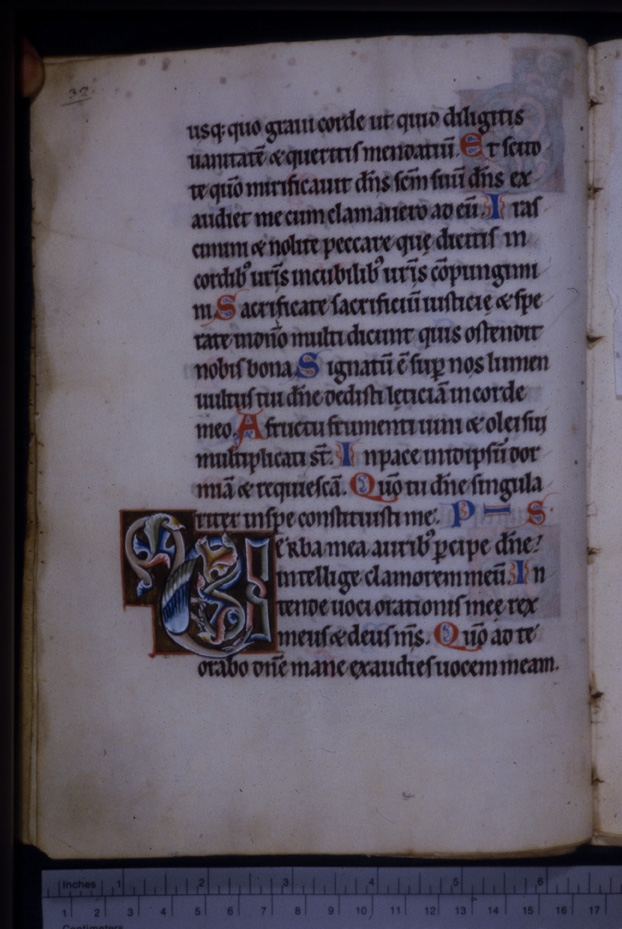 32.
usq: quo graui corde ut quid diligitis
uanitatē & queritis mendatiū. Et scito
te quō mirificauit dn̄s scm̄ suū dn̄s ex
audiet me cum clamauero ad eū. I ras
cimini & nolite peccare quę dicitis in
cordib' ur̄is incubilib' ur̄is cōpungimi
ni Sacrificate sacrificiū iusticię & spe
rate indn̄o multi dicunt quis ostendit
nobis bona Signatū ē sup nos lumen
uultus tui dn̄e dedisti lęticiā in corde
meo. A fructu frumenti uini & olei sui
multiplicati st̄. I npace inidipsū dor
miā & requiescā. Quō tu dn̄e singula
riter inspe constituisti me. P S
Verba mea aurib' pcipe dn̄e.
intellige clamorem meū. In
tende uoci orationis meę rex
meus & deus ms̄. Quō ad te
orabo dn̄e mane exaudies uocem meam.
Inches 1 2 3 4 5 6
1 2 3 4 5 6 7 8 9 10 11 12 13 14 15 16 17
Centimeters